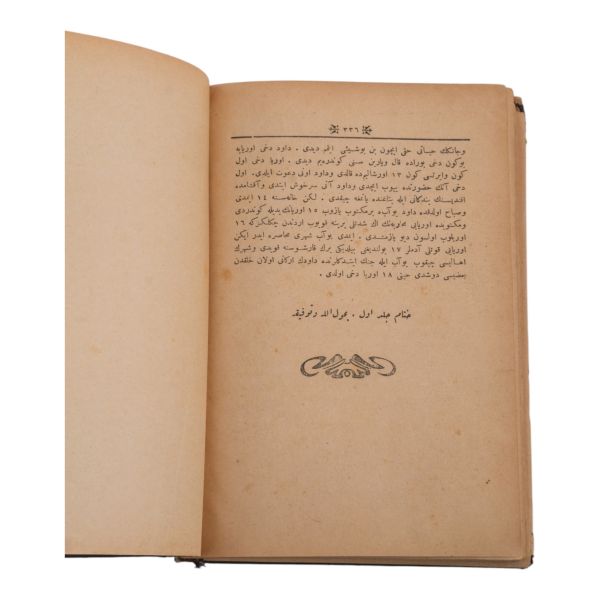 ٣٣٦
وجانكك حياتى حقى ايچون بن بوشيئى ايتمم ديدى . داود دخى اوريايه
بوكون دخى بوراده قال ويارين سنى كوندريرم ديدى . اوريا دخى اول
كون وايرتسى كون ١٣ اورشاليمده قالدى وداود اونى دعوت ايلدى . اول
دخى آنك حضورنده ييوب ايچدى وداود آنى سرخوش ايتدى وآقشامده
افنديسنك بندكانى ايله يتاغنده ياتمغه چيقدى . لكن خانه‌سنه ١٤ اينمدى
وصباح اولدقده داود يوآبه برمكتوب يازوب ١٥ اوريانك يديله كوندردى
ومكتوبده اوريايى محاربه‌نك اك شدتلى يرينه قويوب اردندن چكلكزكه ١٦
اوريلوب اولسون ديو يازمشدى . ايمدى يوآب شهرى محاصره ايدر ايكن
اوريايى قوتلى آدملر ١٧ بولنديغنى بيلديكى يرك قارشوسنه قويدى وشهرك
اهاليسى چيقوب يوآب ايله جنك ايتدكلرنده داودك اركانى اولان خلقدن
بعضيسى دوشدى حتى ١٨ اوريا دخى اولدى .
ختام جلد اول . بحول الله وتوفيقه